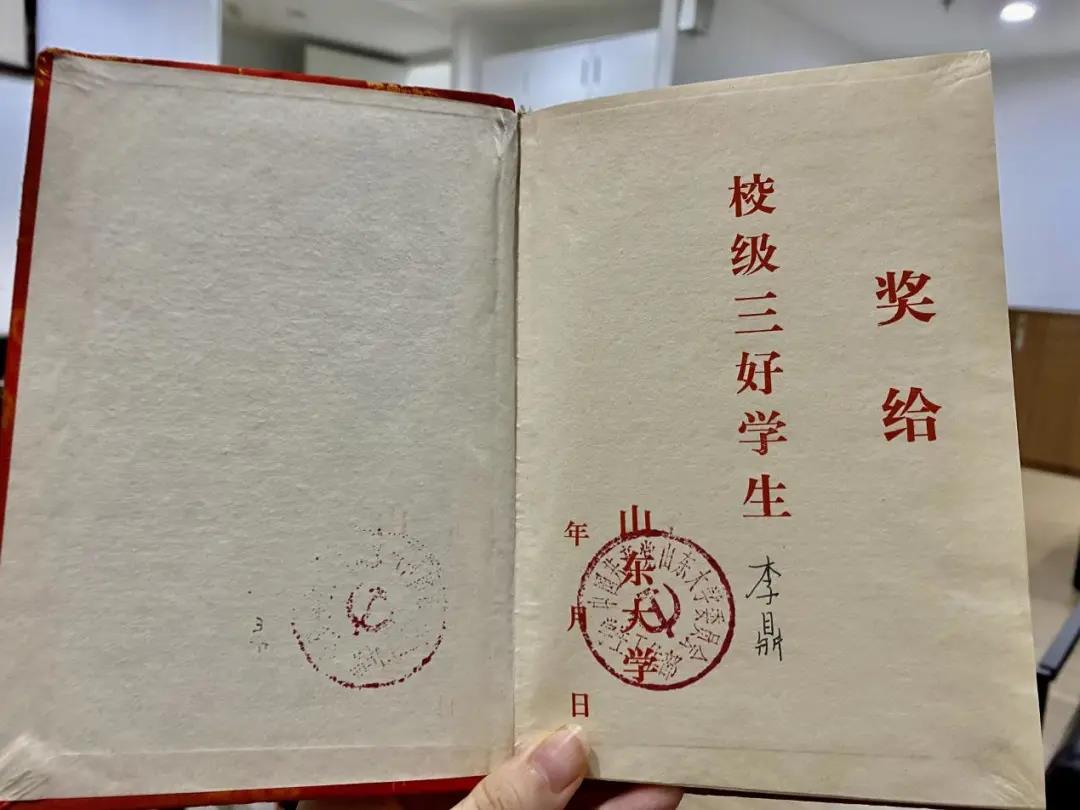 奖给
校级三好学生
李鼎
山东大学
中国共产党山东大学委员会
年 月 日